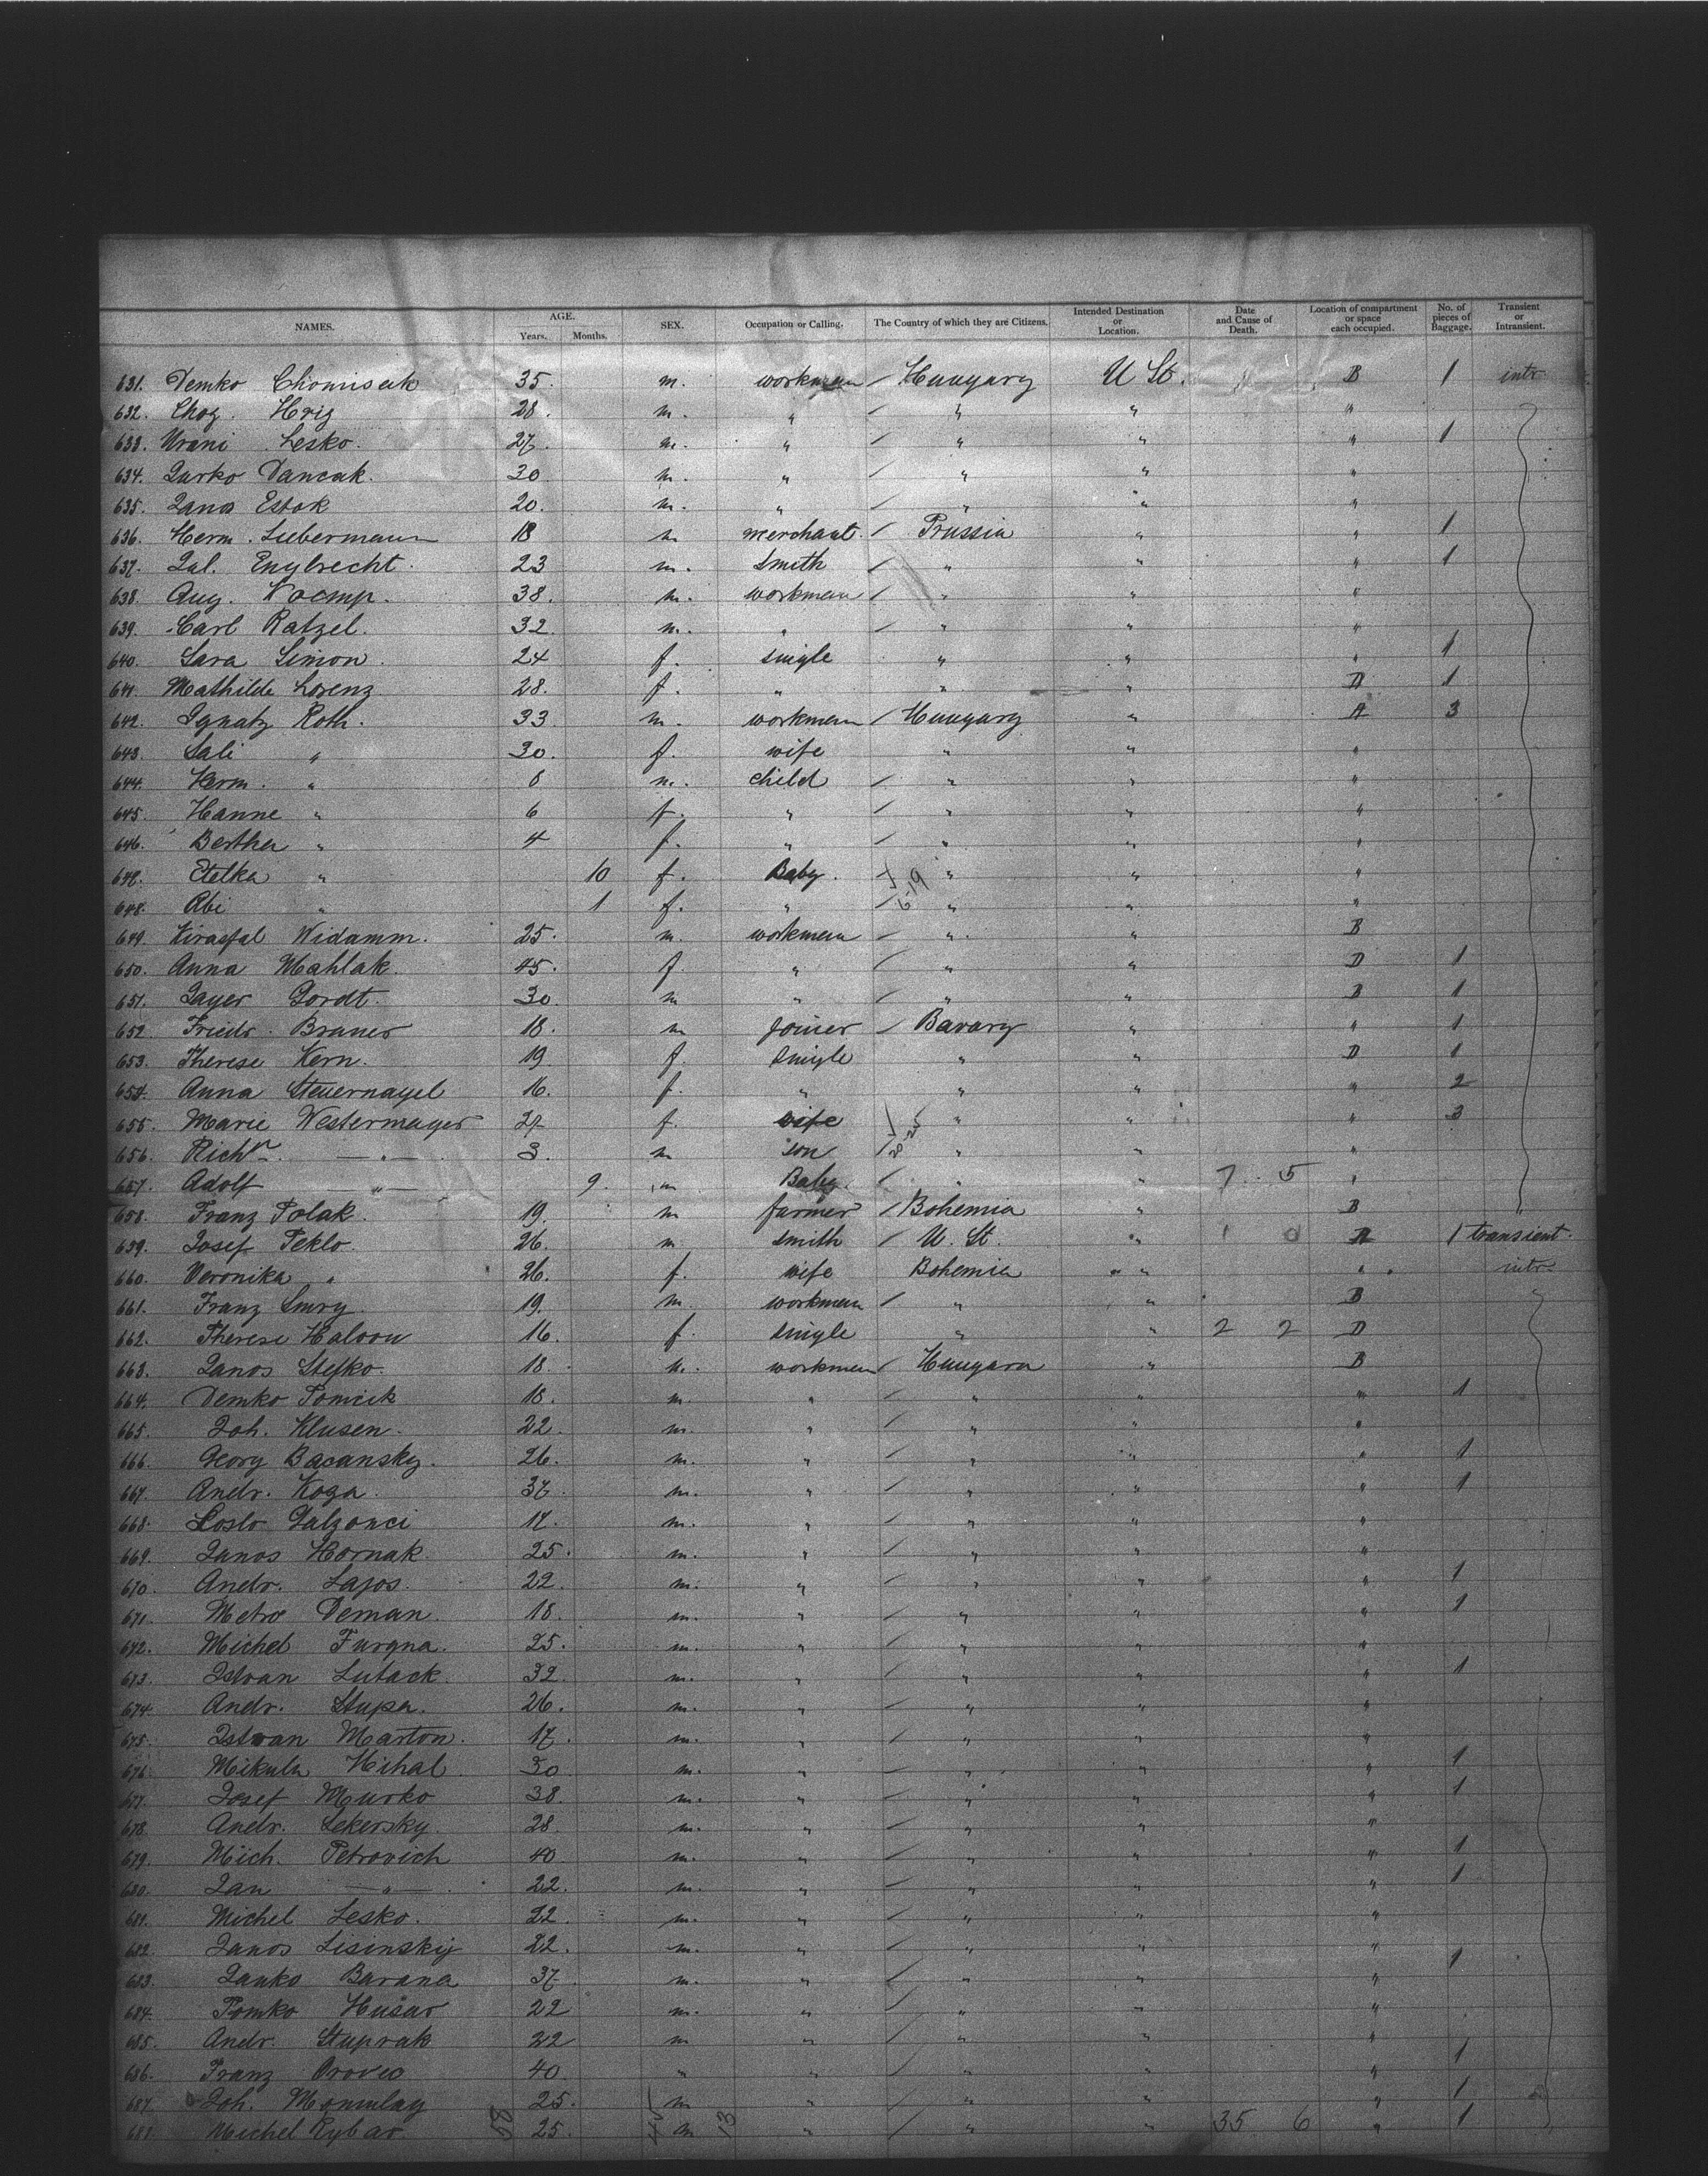 NAMES. AGE. Years. Months. SEX. Occupation or Calling. The Country of which they are Citizens. Intended Destination or Location. Date and Cause of Death. Location of compartment or space each occupied. No. of pieces of Baggage. Transient or Intransient.
631. Demko 35. m. workman / Hungary U St. B 1 intr
632. Hrig 28. m. " / " " "
633. Lesko. 27. m. " / " " " 1
634. Vancak. 30. m. " / " " "
635. Estok 20. m. " / " " "
636. Herm. Liebermann 18 m merchant. / Prussia " " 1
637. Jul. Engbrecht. 23 m. smith / " " " 1
638. Aug. Kocmp. 38. m. workman / " " "
639. Carl Ratzel. 32. m. " / " " "
640. Sara Simon. 24 f. single " " " 1
641. Mathilde Lorenz 28. f. " " " D 1
642. Ignatz Roth. 33 m. workman / Hungary " A 3
643. Sali " 30. f. wife " " "
644. Herm. " 8 m. child / " " "
645. Hanne " 6 f. " / " " "
646. Bertha " 4 f. " / " " "
647. Etelka " 10 f. Baby. " " "
648. " 1 f. " / " " "
649. Widamm. 25. m. workman / " " B
650. Anna Mahlak. 45. f. " / " " D 1
651. 30. m " / " " B 1
652. Friedr. Bruner 18. m joiner / Bavary " " 1
653. Therese Kern. 19 f. single " " D 1
654. Anna Steuernagel 16. f. " " " " 2
655. Marie Westermayer 27 f. wife " " " 3
656. Richd. — " — 3. m son / " " "
657. Adolf — " — 9. m Baby. / " " 7 5 "
658. Franz Polak. 19. m farmer / Bohemia " B
659. Josef Peklo. 26. m. smith / U. St. " A 1 transient.
660. Veronika " 26. f. wife Bohemia " " intr
661. Franz Smrz. 19. m. workman / " " B
662. Therese 16. f. single " " 2 2 D
663. Janos Stefko. 18. m. workman / Hungara " B
664. Demko Tomcik 18. m. " / " " " 1
665. Joh. Klusen. 22. m. " / " " "
666. Georg Bacansky. 26. m. " / " " " 1
667. Andr. Koza. 37. m. " / " " " 1
668. 17. m. " / " " "
669. Janos Hornak. 25. m. " / " " "
670. Andr. Lajos. 22. m. " / " " " 1
671. Metro Deman. 18. m. " / " " " 1
672. Michel 25. m. " / " " "
673. Istvan Lutack. 32. m. " / " " " 1
674. Andr. Stupa. 26. m. " / " " "
675. Istvan Marton. 17. m. " / " " "
676. Mikula Mihal. 30 m. " / " " " 1
677. Josef Murko 38. m. " / " " " 1
678. Andr. Sekersky. 28. m. " / " " "
679. Mich. Petrovich 40 m. " / " " " 1
680. Jan — " — 22. m. " / " " " 1
681. Michel Lesko. 22. m. " / " " "
682. Janos Lisinskij 22. m. " / " " " 1
683. Janko Barana 37. m. " / " " "
684. Tomko Husar 22 m. " / " " "
685. Andr. Stuprak 22 m " / " " " 1
686. Franz 40. " " / " " "
687. Joh. 25. m " / " " " 1
688. Michel Rybar. 58 25. m 13 " / " " 35 6 " 1